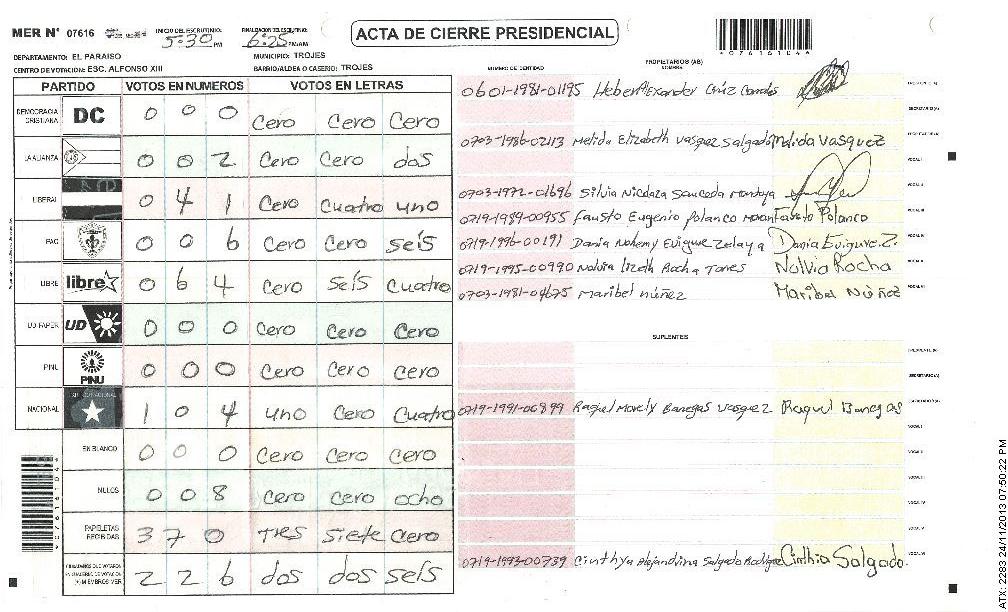 MER Nº 07616
INICIO DEL ESCRUTINIO: 5:30 PM
FINALIZACION DEL ESCRUTINIO: 6:25 PM/AM
ACTA DE CIERRE PRESIDENCIAL
DEPARTAMENTO: EL PARAISO
MUNICIPIO: TROJES
CENTRO DE VOTACION: ESC. ALFONSO XIII
BARRIO/ALDEA O CASERIO: TROJES
PARTIDO VOTOS EN NUMEROS VOTOS EN LETRAS
DEMOCRACIA CRISTIANA DC 0 0 0 Cero Cero Cero
LA ALIANZA 0 0 2 Cero Cero dos
LIBERAL 0 4 1 Cero Cuatro uno
PAC 0 0 6 Cero Cero seis
LIBRE libre 0 6 4 Cero Seis Cuatro
UD-FAPER UD 0 0 0 Cero Cero Cero
PINU PINU 0 0 0 Cero Cero Cero
NACIONAL 1 0 4 uno Cero Cuatro
EN BLANCO 0 0 0 Cero Cero Cero
NULOS 0 0 8 Cero Cero ocho
PAPELETAS RECIBIDAS 3 7 0 Tres Siete Cero
CIUDADANOS QUE VOTARON EN CUADERNO DE VOTACION (+) MIEMBROS MER 2 2 6 dos dos seis
NUMERO DE IDENTIDAD
PROPIETARIOS (AS)
NOMBRE
0601-1981-01195 Heber Alexander Cruz
0703-1986-02113 Melida Elizabeth Vasquez Salgado Melida Vasquez
0703-1972-01696 Silvia Nicolaza Sauceda Montoya
0719-1989-00955 Fausto Eugenio Polanco Fausto Polanco
0719-1996-00191 Dania Nohemy Evigure Zelaya Dania Evigure Z.
0719-1995-00990 Nolvia lizeth Rocha Torres Nolvia Rocha
0703-1981-04675 Maribel núñez Maribel Núñez
SUPLENTES
0719-1991-00899 Raquel Banegas Vasquez Raquel Banegas
0719-1993-00739 Cinthya Alejandrina Salgado Rodriguez Cinthia Salgado.
ATX: 2283 24/11/2013 07:50:22 PM